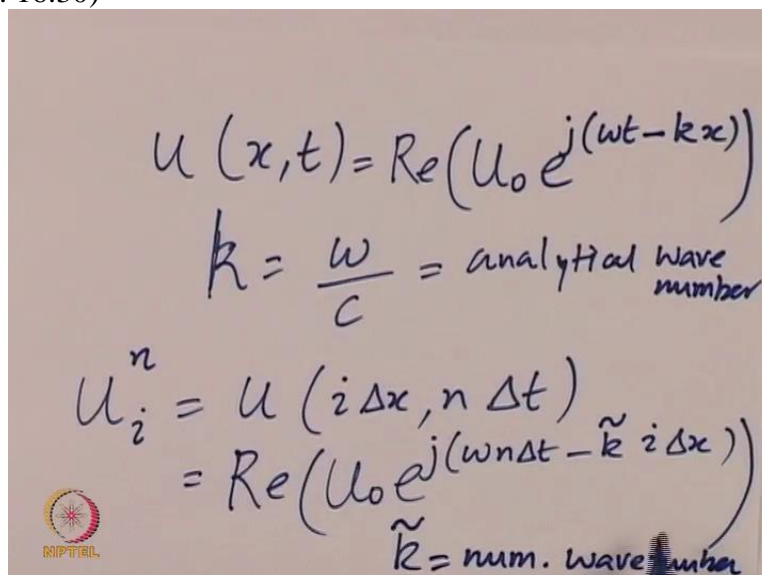 : 16:50)
u (x,t) = Re(U₀ e^{j(ωt - kx)})
k = ω/c = analytical wave number
u_i^n = u (i Δx, n Δt)
= Re(U₀ e^{j(ωnΔt - k̃ i Δx)})
k̃ = num. wave number
NPTEL